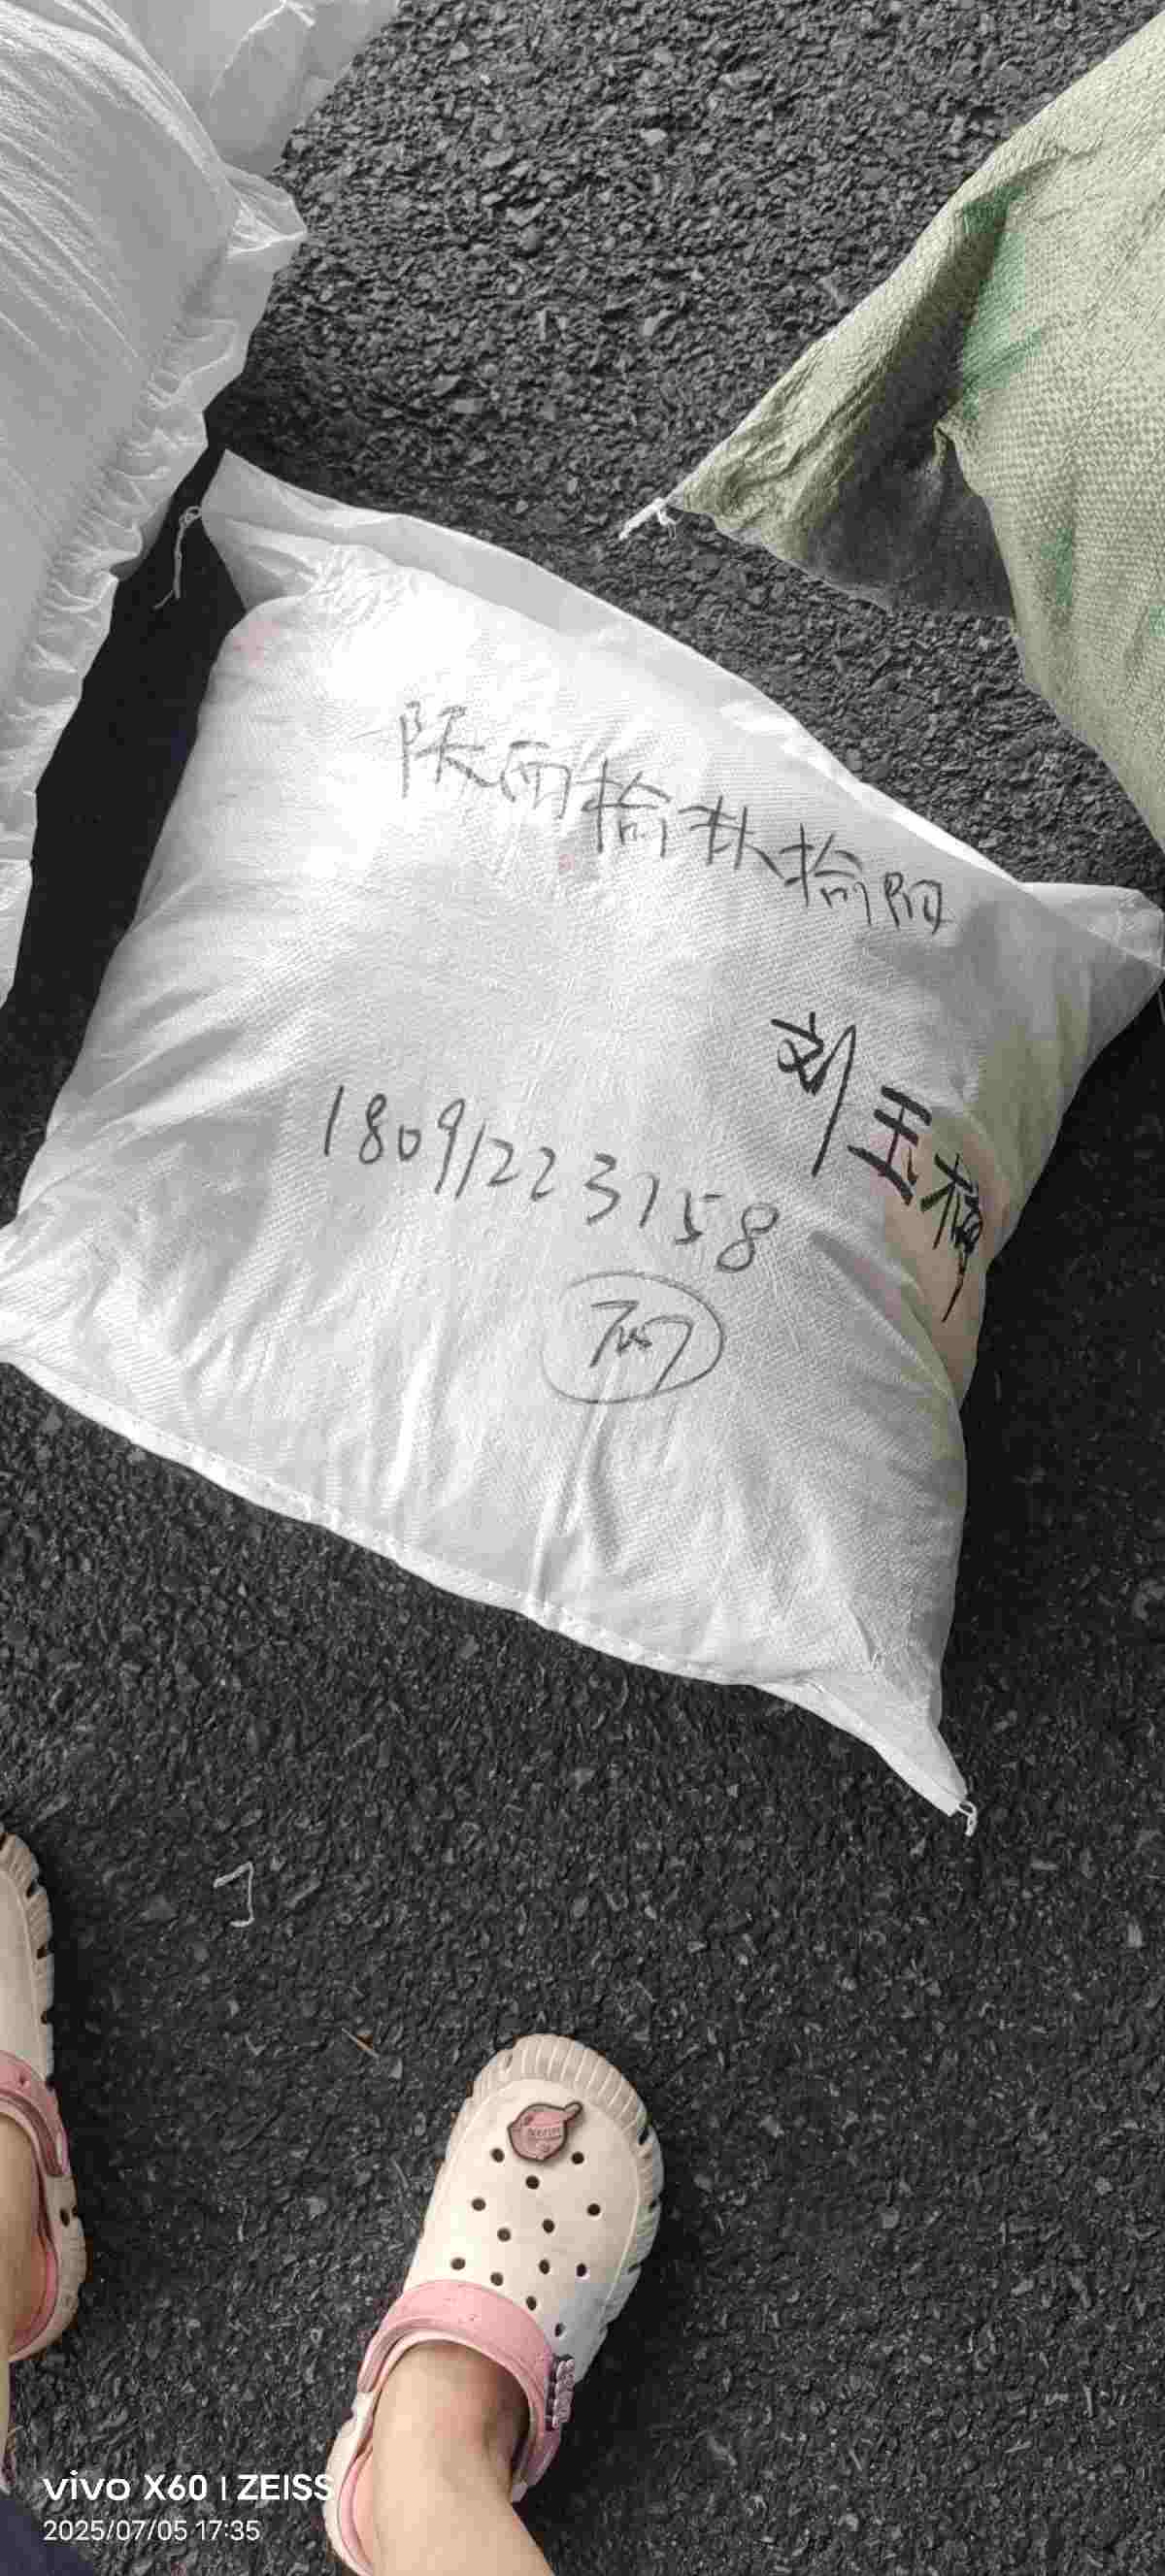 陕西榆林榆阳
刘玉梅
18091223158
vivo X60 | ZEISS
2025/07/05 17:35